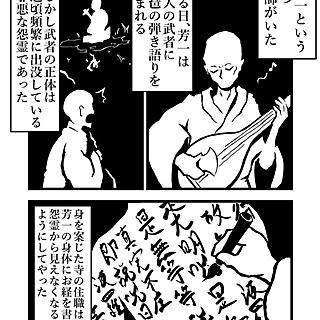 一という
師がいた
る日、芳一は
人の武者に
琶の弾き語りを
まれる
かし武者の正体は
頃頻繁に出没している
悪な怨霊であった
身を案じた寺の住職は
芳一の身体にお経を書
怨霊から見えなくなる
ようにしてやった
故
是無等等